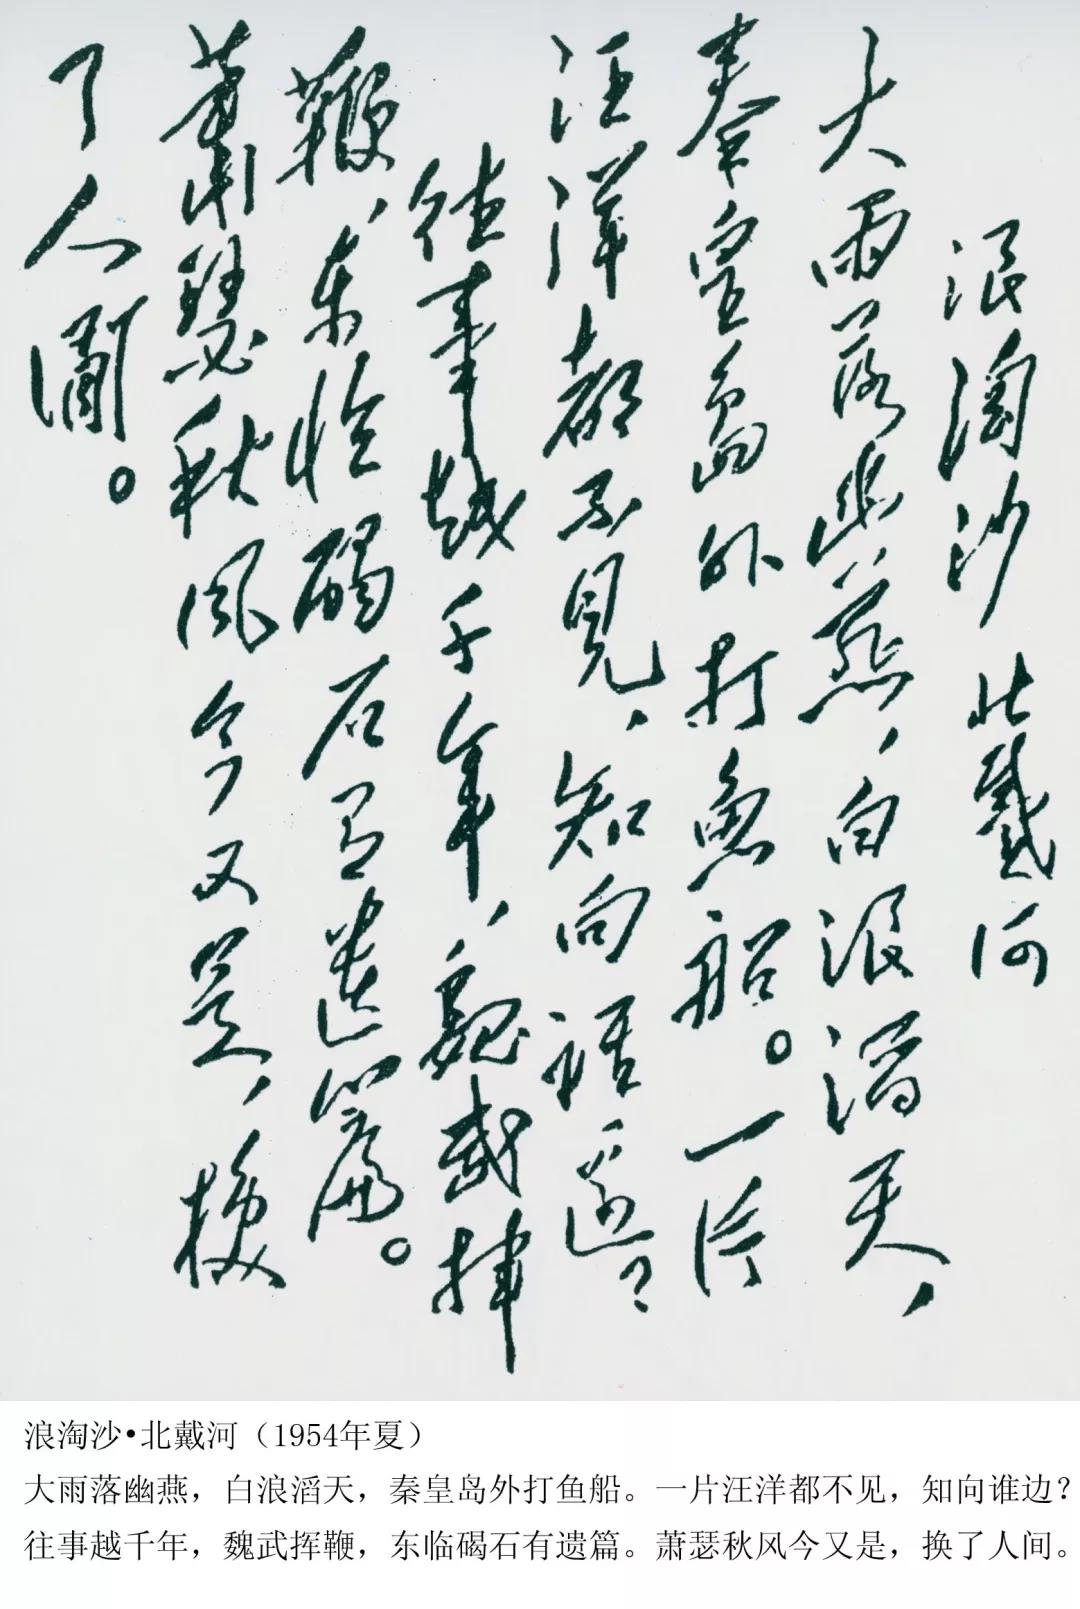 浪淘沙 北戴河
大雨落幽燕，白浪滔天，
秦皇岛外打鱼船。一片
汪洋都不見，知向谁边？
往事越千年，魏武揮
鞭，东临碣石有遗篇。
萧瑟秋风今又是，换
了人间。
浪淘沙•北戴河（1954年夏）
大雨落幽燕，白浪滔天，秦皇岛外打鱼船。一片汪洋都不见，知向谁边？
往事越千年，魏武挥鞭，东临碣石有遗篇。萧瑟秋风今又是，换了人间。